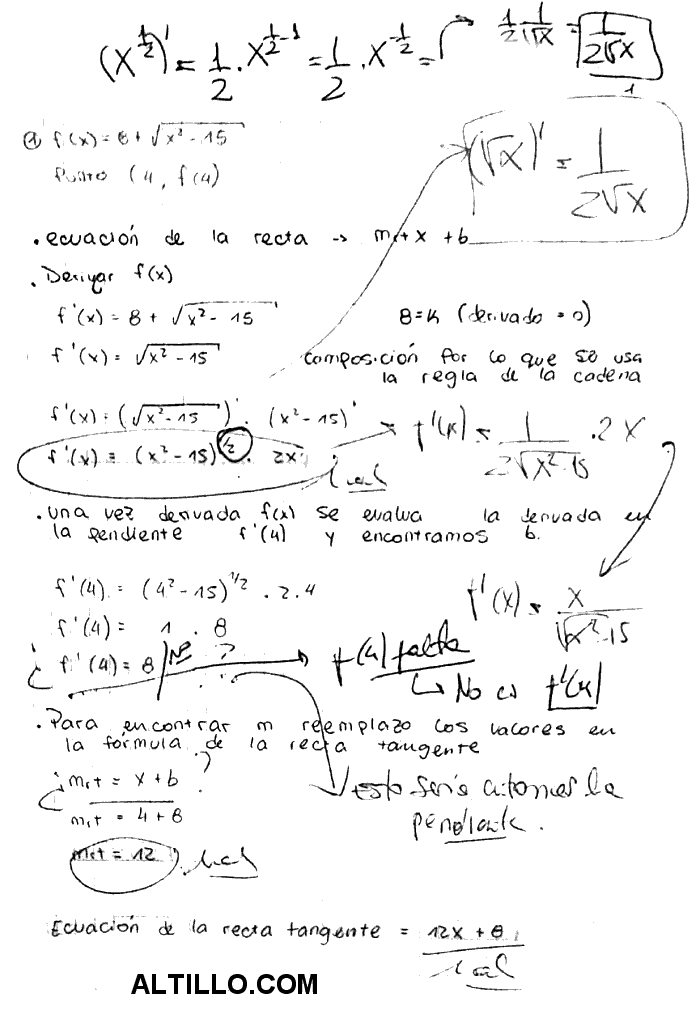 (x^½)' = 1/2 · x^(1/2 - 1) = 1/2 · x^(-1/2) = 1/2 1/√x = 1/(2√x)
1
① f(x) = 8 + √(x² - 15)
Punto (4, f(4)
(√x)' = 1/(2√x)
. ecuación de la recta → mrt x + b
. Derivar f(x)
f'(x) = 8 + √(x² - 15)' 8 = k (derivado = 0)
f'(x) = √(x² - 15)' composición por lo que se usa
la regla de la cadena
f'(x) = (√(x² - 15))' · (x² - 15)'
f'(x) = (x² - 15)^½ · 2x f'(x) = 1/(2√(x² - 15)) · 2x
mal
. una vez derivada f(x) se evalua la derivada en
la pendiente f'(4) y encontramos b.
f'(4) = (4² - 15)^½ · 2 . 4 f'(x) = x/√(x² - 15)
f'(4) = 1 · 8
¿ f'(4) = 8 No ? f(4) falta
↳ No es f'(4)
. Para encontrar m reemplazo los valores en
la fórmula de la recta tangente
¿ mrt = x + b ? esto sería entonces la
mrt = 4 + 8 pendiente.
mrt = 12 mal
Ecuación de la recta tangente = 12x + 8
mal
ALTILLO.COM